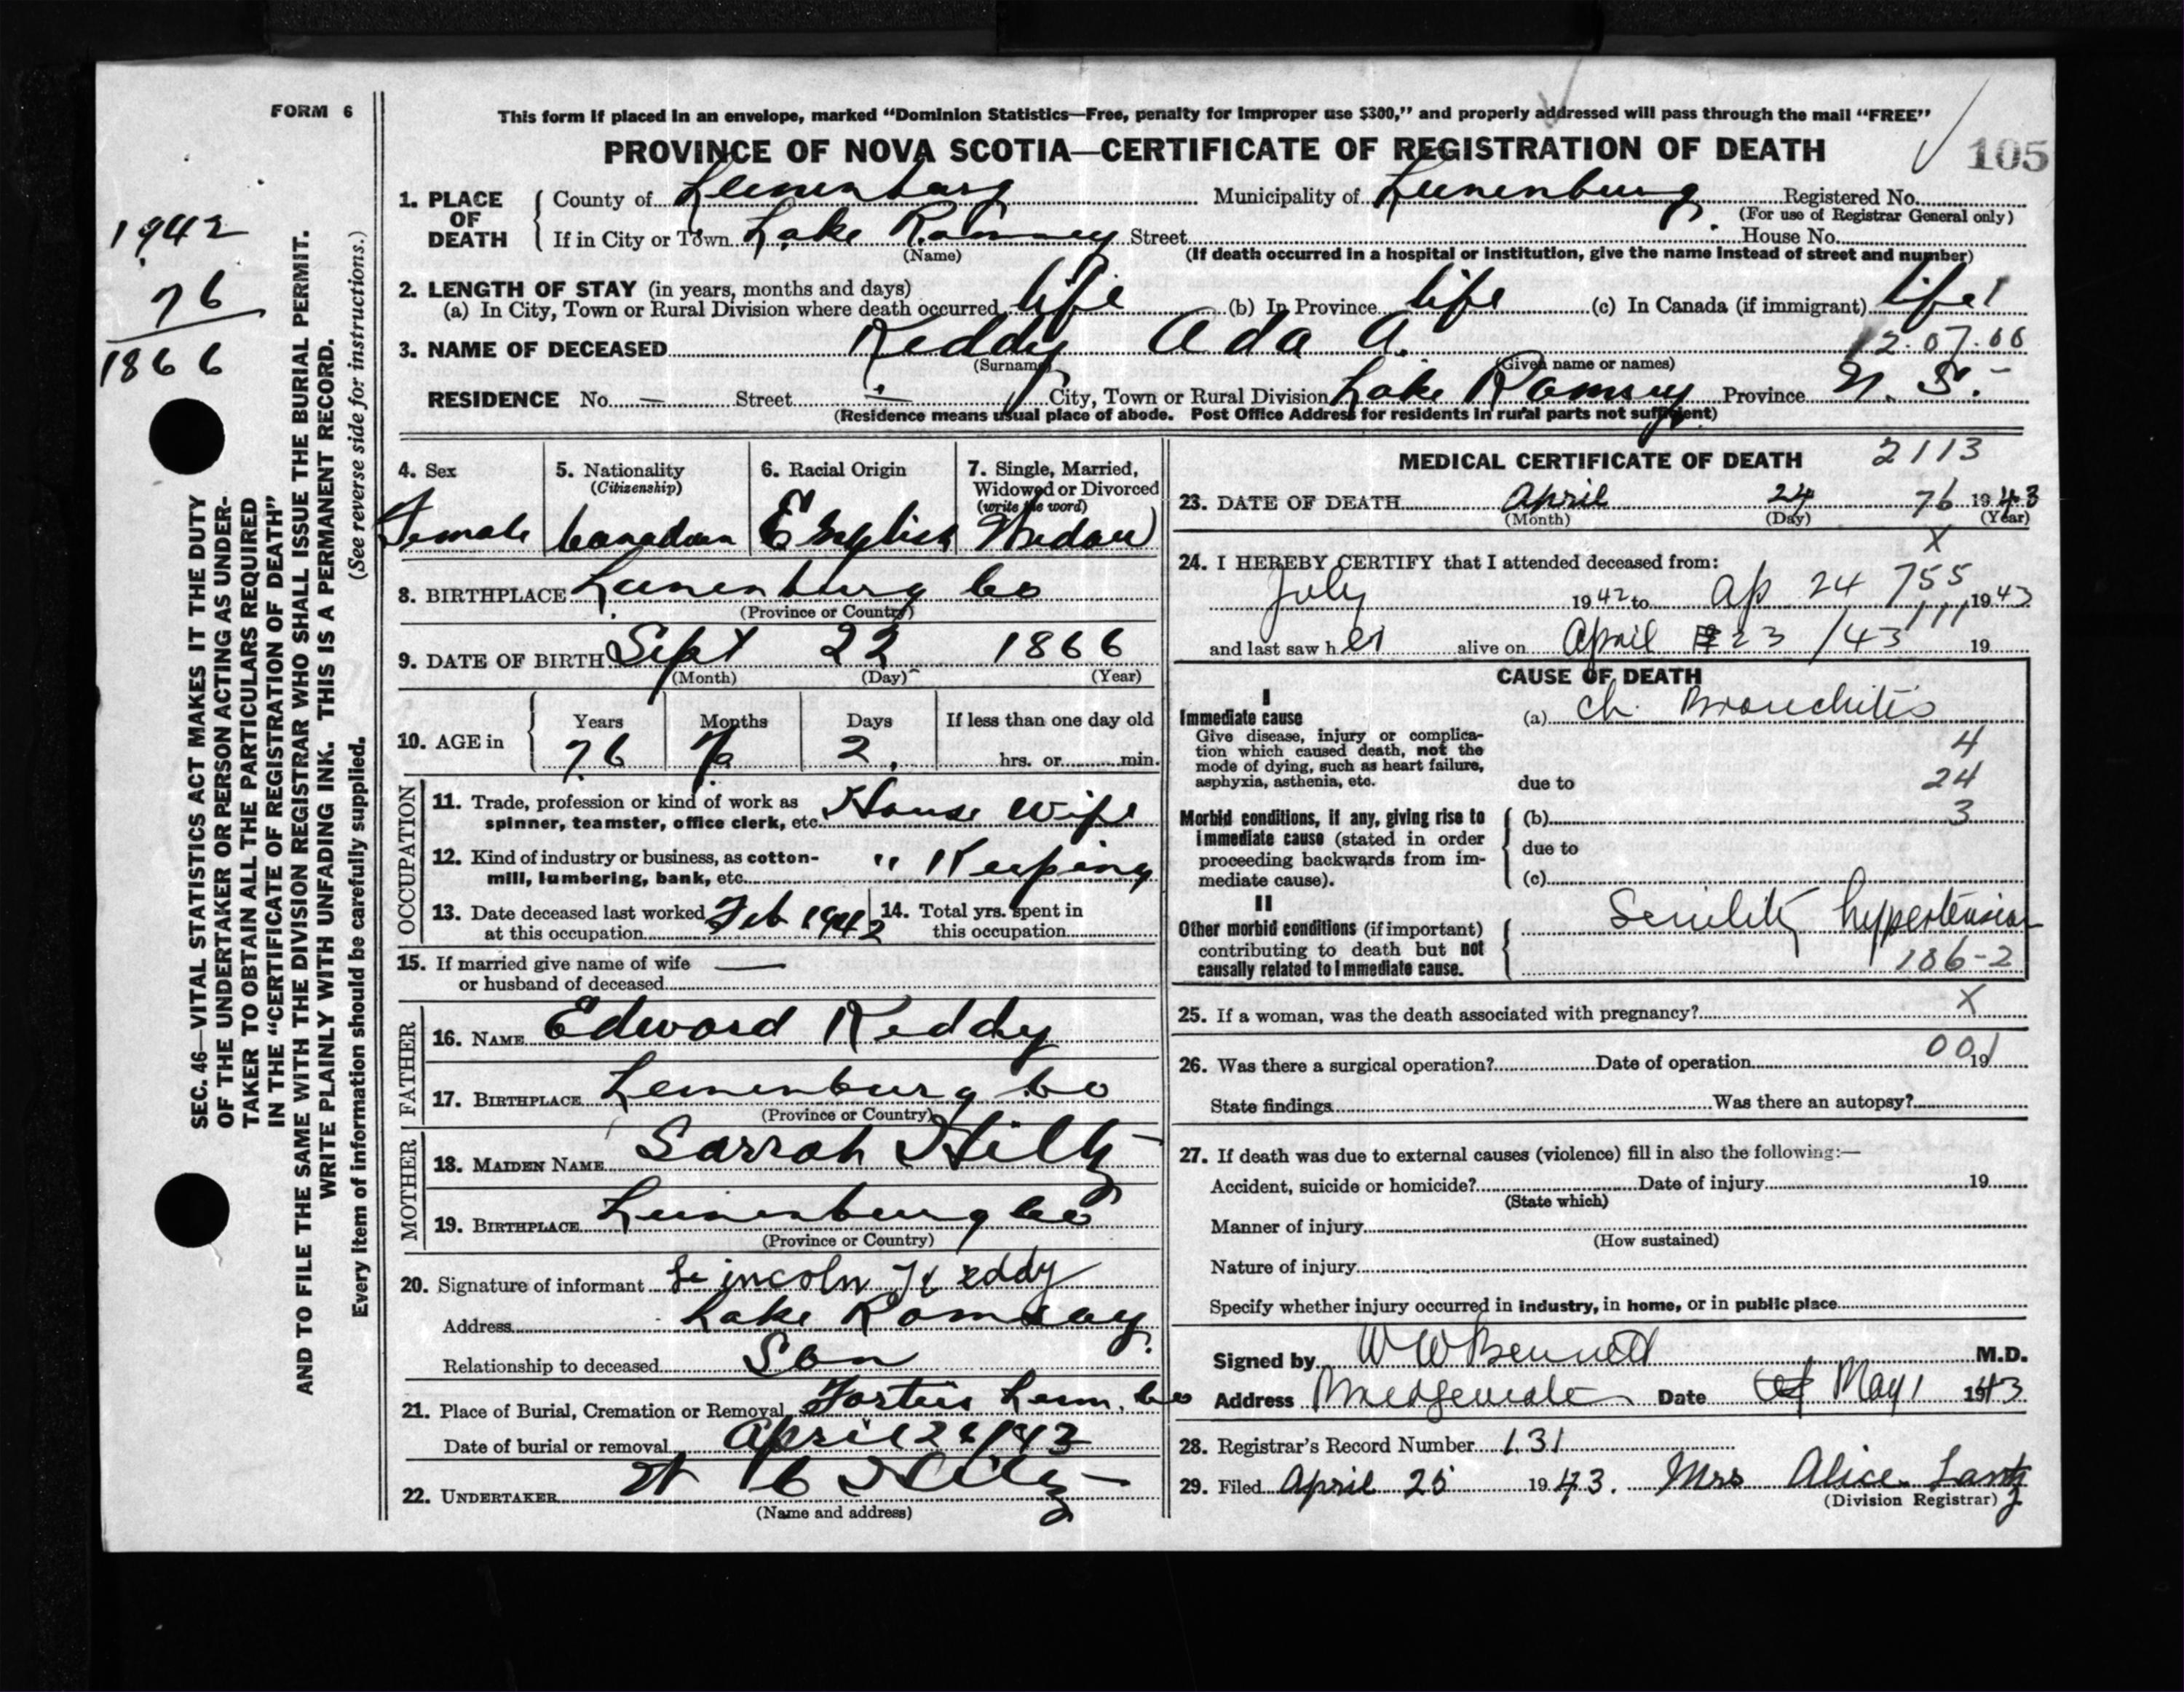 FORM 6
This form if placed in an envelope, marked “Dominion Statistics—Free, penalty for improper use $300,” and properly addressed will pass through the mail “FREE”
PROVINCE OF NOVA SCOTIA—CERTIFICATE OF REGISTRATION OF DEATH
105
1. PLACE OF DEATH
County of Lunenburg Municipality of Lunenburg Registered No.
(For use of Registrar General only)
If in City or Town Lake Ramsey Street House No.
(Name) (If death occurred in a hospital or institution, give the name instead of street and number)
2. LENGTH OF STAY (in years, months and days)
(a) In City, Town or Rural Division where death occurred life (b) In Province life (c) In Canada (if immigrant) life
3. NAME OF DECEASED Keddy Ada A. 12.07.00
(Surname) (Given name or names)
RESIDENCE No. — Street — City, Town or Rural Division Lake Ramsey Province N. S.
(Residence means usual place of abode. Post Office Address for residents in rural parts not sufficient)
1942
76
1866
SEC. 46—VITAL STATISTICS ACT MAKES IT THE DUTY
OF THE UNDERTAKER OR PERSON ACTING AS UNDER-
TAKER TO OBTAIN ALL THE PARTICULARS REQUIRED
IN THE “CERTIFICATE OF REGISTRATION OF DEATH”
AND TO FILE THE SAME WITH THE DIVISION REGISTRAR WHO SHALL ISSUE THE BURIAL PERMIT.
WRITE PLAINLY WITH UNFADING INK. THIS IS A PERMANENT RECORD.
Every item of information should be carefully supplied. (See reverse side for instructions.)
4. Sex
Female
5. Nationality
(Citizenship)
Canadian
6. Racial Origin
English
7. Single, Married,
Widowed or Divorced
(write the word)
Widow
8. BIRTHPLACE Lunenburg Co
(Province or Country)
9. DATE OF BIRTH Sept 22 1866
(Month) (Day) (Year)
10. AGE in
Years Months Days If less than one day old
76 7 2 hrs. or min.
OCCUPATION
11. Trade, profession or kind of work as
spinner, teamster, office clerk, etc. House Wife
12. Kind of industry or business, as cotton-
mill, lumbering, bank, etc. " Keeping
13. Date deceased last worked
at this occupation Feb 1942
14. Total yrs. spent in
this occupation
15. If married give name of wife —
or husband of deceased
FATHER
16. NAME Edward Keddy
17. BIRTHPLACE Lunenburg Co
(Province or Country)
MOTHER
18. MAIDEN NAME Sarrah Hiltz
19. BIRTHPLACE Lunenburg Co
(Province or Country)
20. Signature of informant Lincoln Keddy
Address Lake Ramsay
Relationship to deceased Son
21. Place of Burial, Cremation or Removal Fosters Lun. Co
Date of burial or removal April 26/43
22. UNDERTAKER Hiltz
(Name and address)
MEDICAL CERTIFICATE OF DEATH 2113
23. DATE OF DEATH April 24 76 1943
(Month) (Day) (Year)
X
24. I HEREBY CERTIFY that I attended deceased from:
July 1942 to Ap 24 755 1943
and last saw her alive on April 23 /43 19
CAUSE OF DEATH
I
Immediate cause
Give disease, injury or complica-
tion which caused death, not the
mode of dying, such as heart failure,
asphyxia, asthenia, etc.
(a) Ch. Bronchitis
4
due to 24
Morbid conditions, if any, giving rise to
immediate cause (stated in order
proceeding backwards from im-
mediate cause).
(b) 3
due to
(c)
II
Other morbid conditions (if important)
contributing to death but not
causally related to immediate cause.
Senility hypertension
106-2
25. If a woman, was the death associated with pregnancy? X
26. Was there a surgical operation? Date of operation 19
001
State findings Was there an autopsy?
27. If death was due to external causes (violence) fill in also the following:—
Accident, suicide or homicide? Date of injury 19
(State which)
Manner of injury
(How sustained)
Nature of injury
Specify whether injury occurred in industry, in home, or in public place
Signed by W W Bennett M.D.
Address Bridgewater Date May 1 1943
28. Registrar's Record Number 131
29. Filed April 25 1943. Mrs Alice Lantz
(Division Registrar)